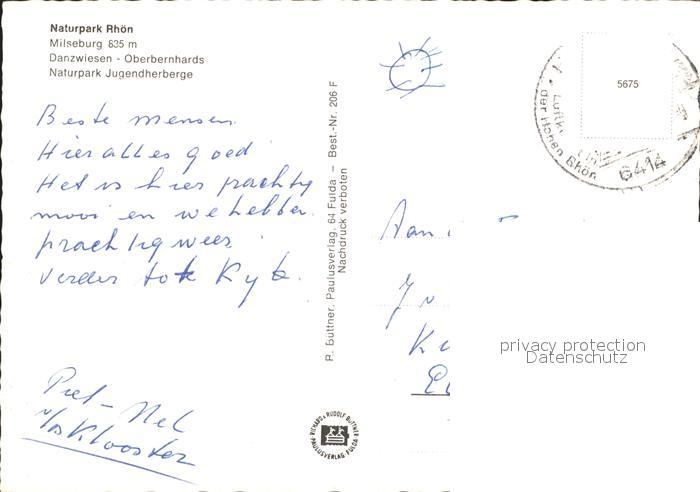 Naturpark Rhön
Milseburg 835 m
Danzwiesen - Oberbernhards
Naturpark Jugendherberge
Beste mensen
Hier alles goed
Het is hier prachtig
mooi en we hebben
prachtig weer.
Verder tot Kyk.
Piet - Nel
Klooster
R. Büttner, Paulusverlag, 64 Fulda — Best.-Nr. 206 F
Nachdruck verboten
RICHARD & RUDOLF BÜTTNER
PAULUSVERLAG FULDA
5675
der Hohen Rhön
6414
Aan
privacy protection
Datenschutz